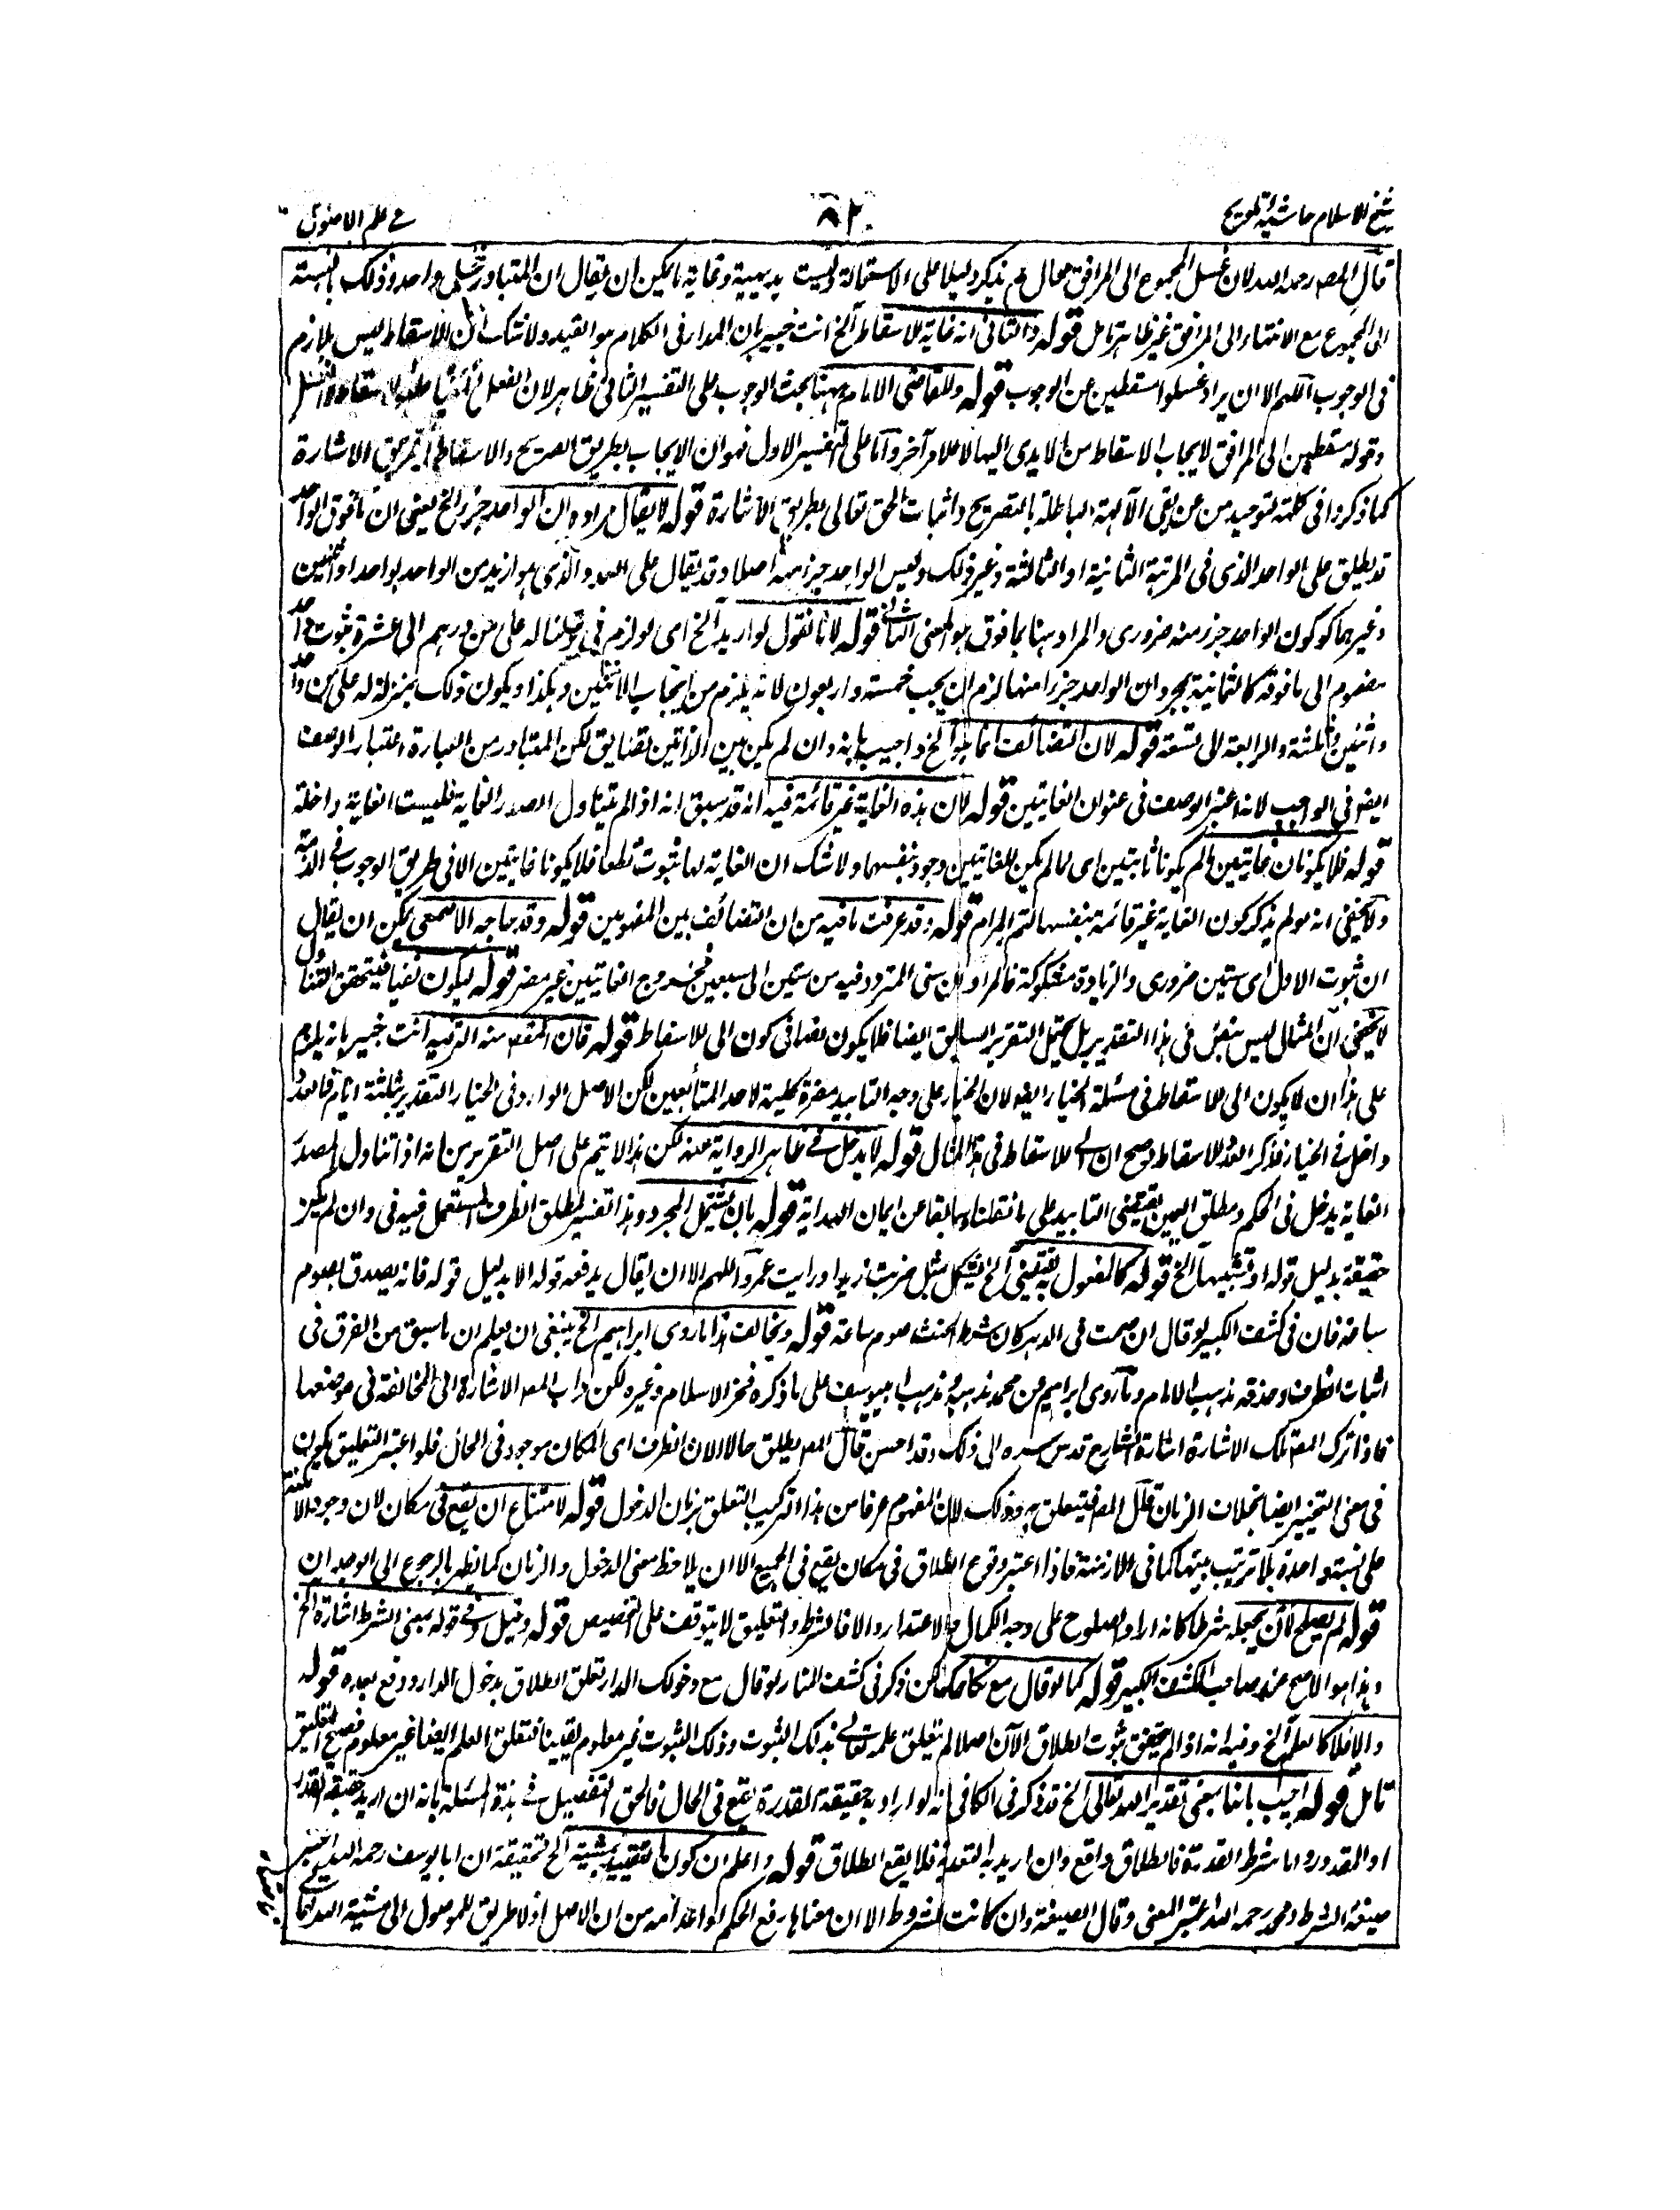 شيخ الاسلام حاشية تلويح
٨٢
في علم الاصول
قال المصـ رحمه الله لان غسل المجموع الى المرافق محال لم يذكر دليلا على الاستحالة وليست بديهية وغاية ما يمكن ان يقال ان المتبادر واحد وذلك بالنسبة
الى المجموع مع الانتهاء الى المرفق غير ظاهر تامل قوله والثاني انه غاية للاسقاط آلخ انت خبير بان المدار في الكلام هو القيد ولا شك ان الاسقاط ليس بلازم
في الوجوب اللهم الا ان يراد غسلوا مسقطين عن الوجوب قوله وللقاضي الامام ههنا بحث الوجوب على التفسير الثاني ظاهر لان الفعل
وقوله مسقطين الى المرافق لايجاب الاسقاط من الايدي اليها لا لامر آخر وأما على التفسير الاول فهو ان الايجاب بطريق الصريح والاسقاط بطريق الاشارة
كما ذكروا في كلمة التوحيد من نفي الآلهة الباطلة بالتصريح واثبات الحق تعالى بطريق الاشارة قوله لا يقال مراده ان الواحد جزء الخ يعني ان ما فوق الواحد
قد يطلق على الواحد الذي في المرتبة الثانية او الثالثة وغير ذلك وليس الواحد جزء منه اصلا وقد يقال على العدد الذي هو ازيد من الواحد بواحد او اثنين
وغيرهما وكون الواحد جزء منه ضروري والمراد هنا بما فوق هو المعنى الثاني قوله لانا نقول لو اريد آلخ اى لو لزم في قولنا له على من درهم الى عشرة ثبوت واحد
مضموم الى ما فوقه كالثمانية بمجرد ان الواحد جزء منها لزم ان يجب خمسة واربعون لانه يلزم من ايجاب الاثنين وهكذا ويكون ذلك بمنزلة له على من واحد
واثنين وثلثة والرابعة الى تسعة قوله لان التضائف آلخ واجيب بانه وان لم يكن بين الذاتين تضايف لكن المتبادر من العبارة اعتبار الوصف
ايضا في الواجب لانه اعتبر الوصف في عنوان الغايتين قوله لان هذه الغاية غير قائمة فيه انه قد سبق انه اذا لم يتناول الصدر الغاية فليست الغاية داخلة
قوله فلا يكونان غايتين ما لم يكونا ثابتين اى ما لم يكن للغايتين وجود بنفسهما ولا شك ان الغاية لها ثبوت قطعا فلا يكونا غايتين الا في طريق الوجوب في الذمة
ولا يخفى انه لو لم يذكر كون الغاية غير قائمة بنفسها لتم المرام قوله وقد عرفت ما فيه من ان التضائف بين المفهومين قوله وقد حاجه الاصمعى يمكن ان يقال
ان ثبوت الاول اى ستين ضروري والزيادة مشكوكة فالمراد من سنى المتردد فيه من ستين الى سبعين فخروج الغايتين غير مضر قوله ليكون نفيا فيتحقق التناول
لا يخفى ان المثال ليس بنص في هذا التقدير بل يحتمل التقرير السابق ايضا فلا يكون نصا في كون الى للاسقاط قوله فان المقصود منه الترفيه انت خبير بانه يلزم
على هذا ان لا يكون الى للاسقاط في مسئلة الخيار ايضا لان الخيار على وجه التابيد مضرة كلية لاحد المتابعين لكن الاصل الوارد في الخيار التقدير بثلثة ايام فالغد
داخل في الخيار فذكر الغد للاسقاط فصح ان الى للاسقاط في هذا المثال قوله لا يدخل في ظاهر الرواية عنه لكن هذا لا يتم على اصل التقرير من انه اذا تناول الصدر
الغاية يدخل في الحكم ومطلق اليمين يقتضي التابيد على ما نقلناه سابقا من ايمان الهداية قوله بان يشتمل المجرور وهذا تفسير لمطلق الظرف المستعمل فيه في وان لم يكن
حقيقة بدليل قوله او تشبيها آلخ قوله كالمفعول به يقتضي آلخ يشكل بمثل ضربت زيدا ورايت عمروا اللهم الا ان يقال يدفعه قوله الا بدليل قوله فانه يصدق بصوم
ساعة فان في كشف الكبير لو قال ان صمت في الدهر كان شرط الحنث صوم ساعة قوله ويخالف هذا ما روى ابراهيم آلخ ينبغي ان يعلم ان ما سبق من الفرق في
اثبات الظرف وحذفه مذهب الامام وما روى ابراهيم عن محمد مذهبه ومذهب ابي يوسف على ما ذكره فخر الاسلام وغيره لكن داب المصـ الاشارة الى المخالفة في موضعها
فاذا ترك المصـ تلك الاشارة اشارة الشارح قدس سره الى ذلك وقد احسن قال المصـ يطلق حالا لان الظرف اى المكان موجود في الحال فلو اعتبر التعليق يكون
في معنى التخيير ايضا بخلاف الزمان قال المصـ فيتعلق به وذلك لان المفهوم عرفا من هذا التركيب التعلق بزمان الدخول قوله لامتناع ان يقع في مكان لان وجود الامكنة
على نسبة واحدة بلا ترتيب بينها كما في الازمنة فاذا اعتبر وقوع الطلاق في مكان يقع في الجميع الا ان يلاحظ معنى الدخول والزمان كما يظهر بالرجوع الى الوجدان
قوله لم يصلح لان يجعله شرطا كانه اراد الصلوح على وجه الكمال والاعتداد والا فالشرط والتعليق لا يتوقف على التخصيص قوله وقيل وفي قوله بمعنى الشرط اشارة آلخ
وهذا هو الاصح عند صاحب الكشف الكبير قوله كما لو قال مع نكاحك لكن ذكر في كشف المنار لو قال مع دخولك الدار تعلق الطلاق بدخول الدار ووقع بعده قوله
والا فلا كما يعلم آلخ وفيه انه اذا لم يتحقق ثبوت الطلاق الآن اصلا لم يتعلق علمه تعالى بذلك الثبوت وذلك الثبوت غير معلوم يقينا فتعلق العلم ايضا غير معلوم فصح التعليق
تامل قوله اجيب بانها بمعنى تقدير الله تعالى الخ قد ذكر في الكافي انه لو اراد به حقيقة القدرة يقع في الحال فالحق التفصيل في هذه المسئلة بانه ان اريد حقيقة القدرة
او المقدور وما شرط القدرة فالطلاق واقع وان اريد به التقدير فلا يقع الطلاق قوله واعلم ان كون التقييد بمشية آلخ تحقيقة ان ابا يوسف رحمه الله اعتبر
صيغة الشرط ومحمد رحمه الله اعتبر المعنى وقال الصيغة وان كانت للشرط الا ان معناها رفع الحكم واعدامه من ان الاصل اذ لا طريق للوصول الى مشية الله تعالى